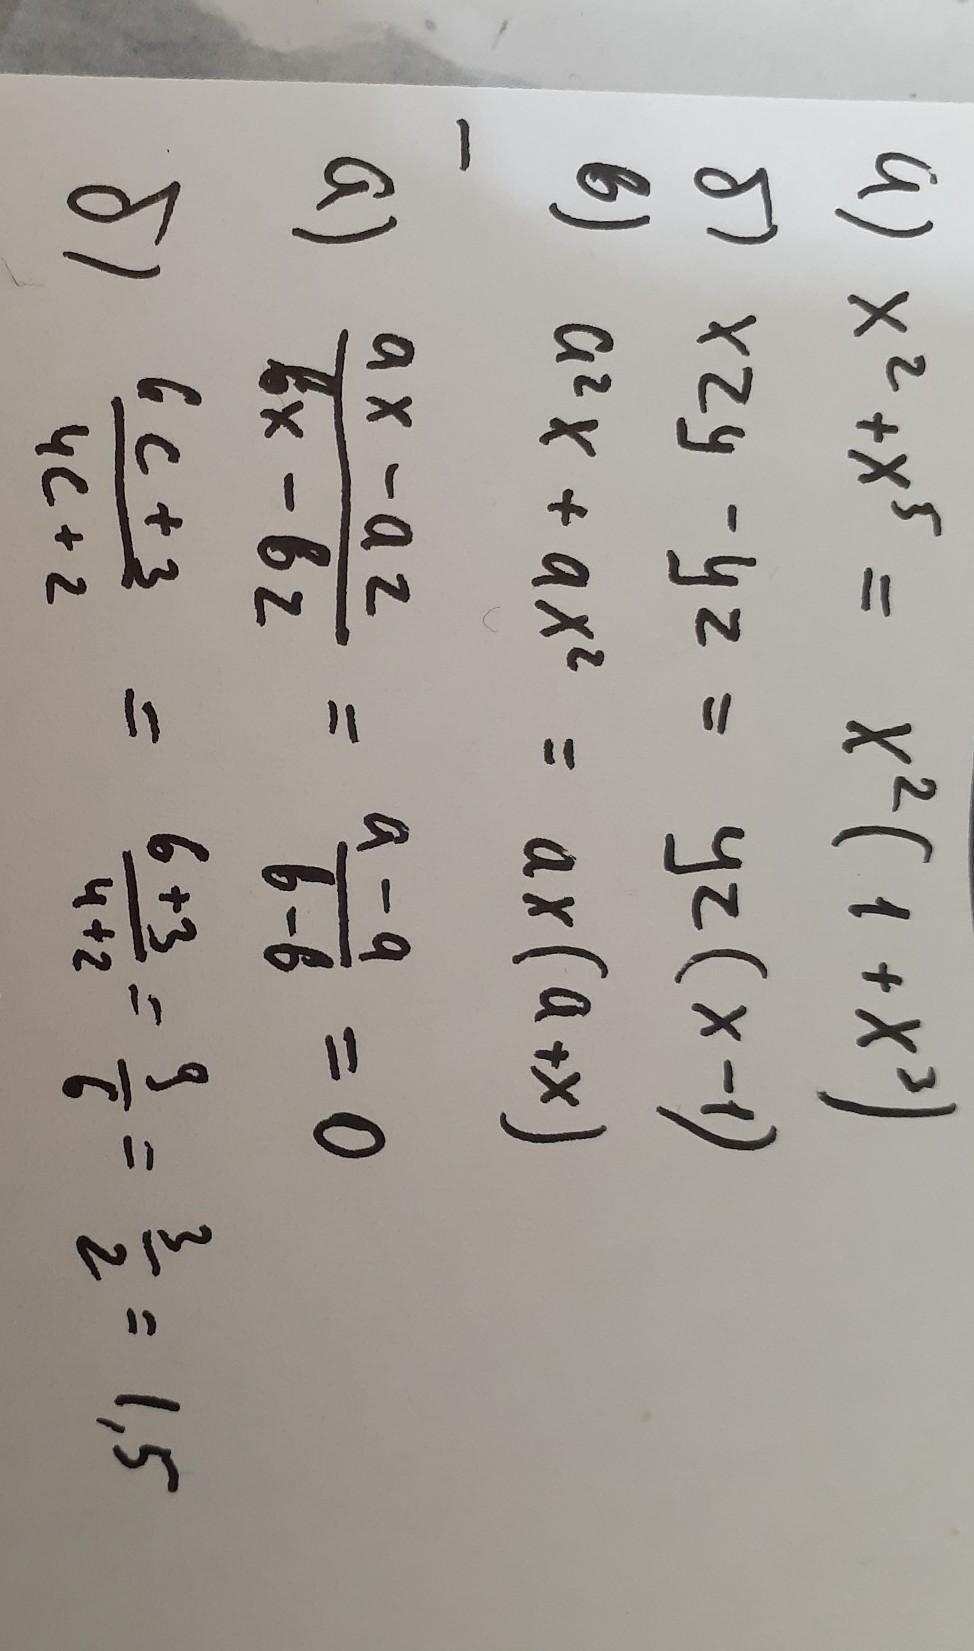 а) x²+x⁵ = x²(1+x³)
б) xzy - yz = yz(x-1)
в) a²x + ax² = ax(a+x)
–
а) \frac{ax-az}{bx-bz} = \frac{a-a}{b-b} = 0
б) \frac{6c+3}{4c+2} = \frac{6+3}{4+2} = \frac{9}{6} = \frac{3}{2} = 1,5